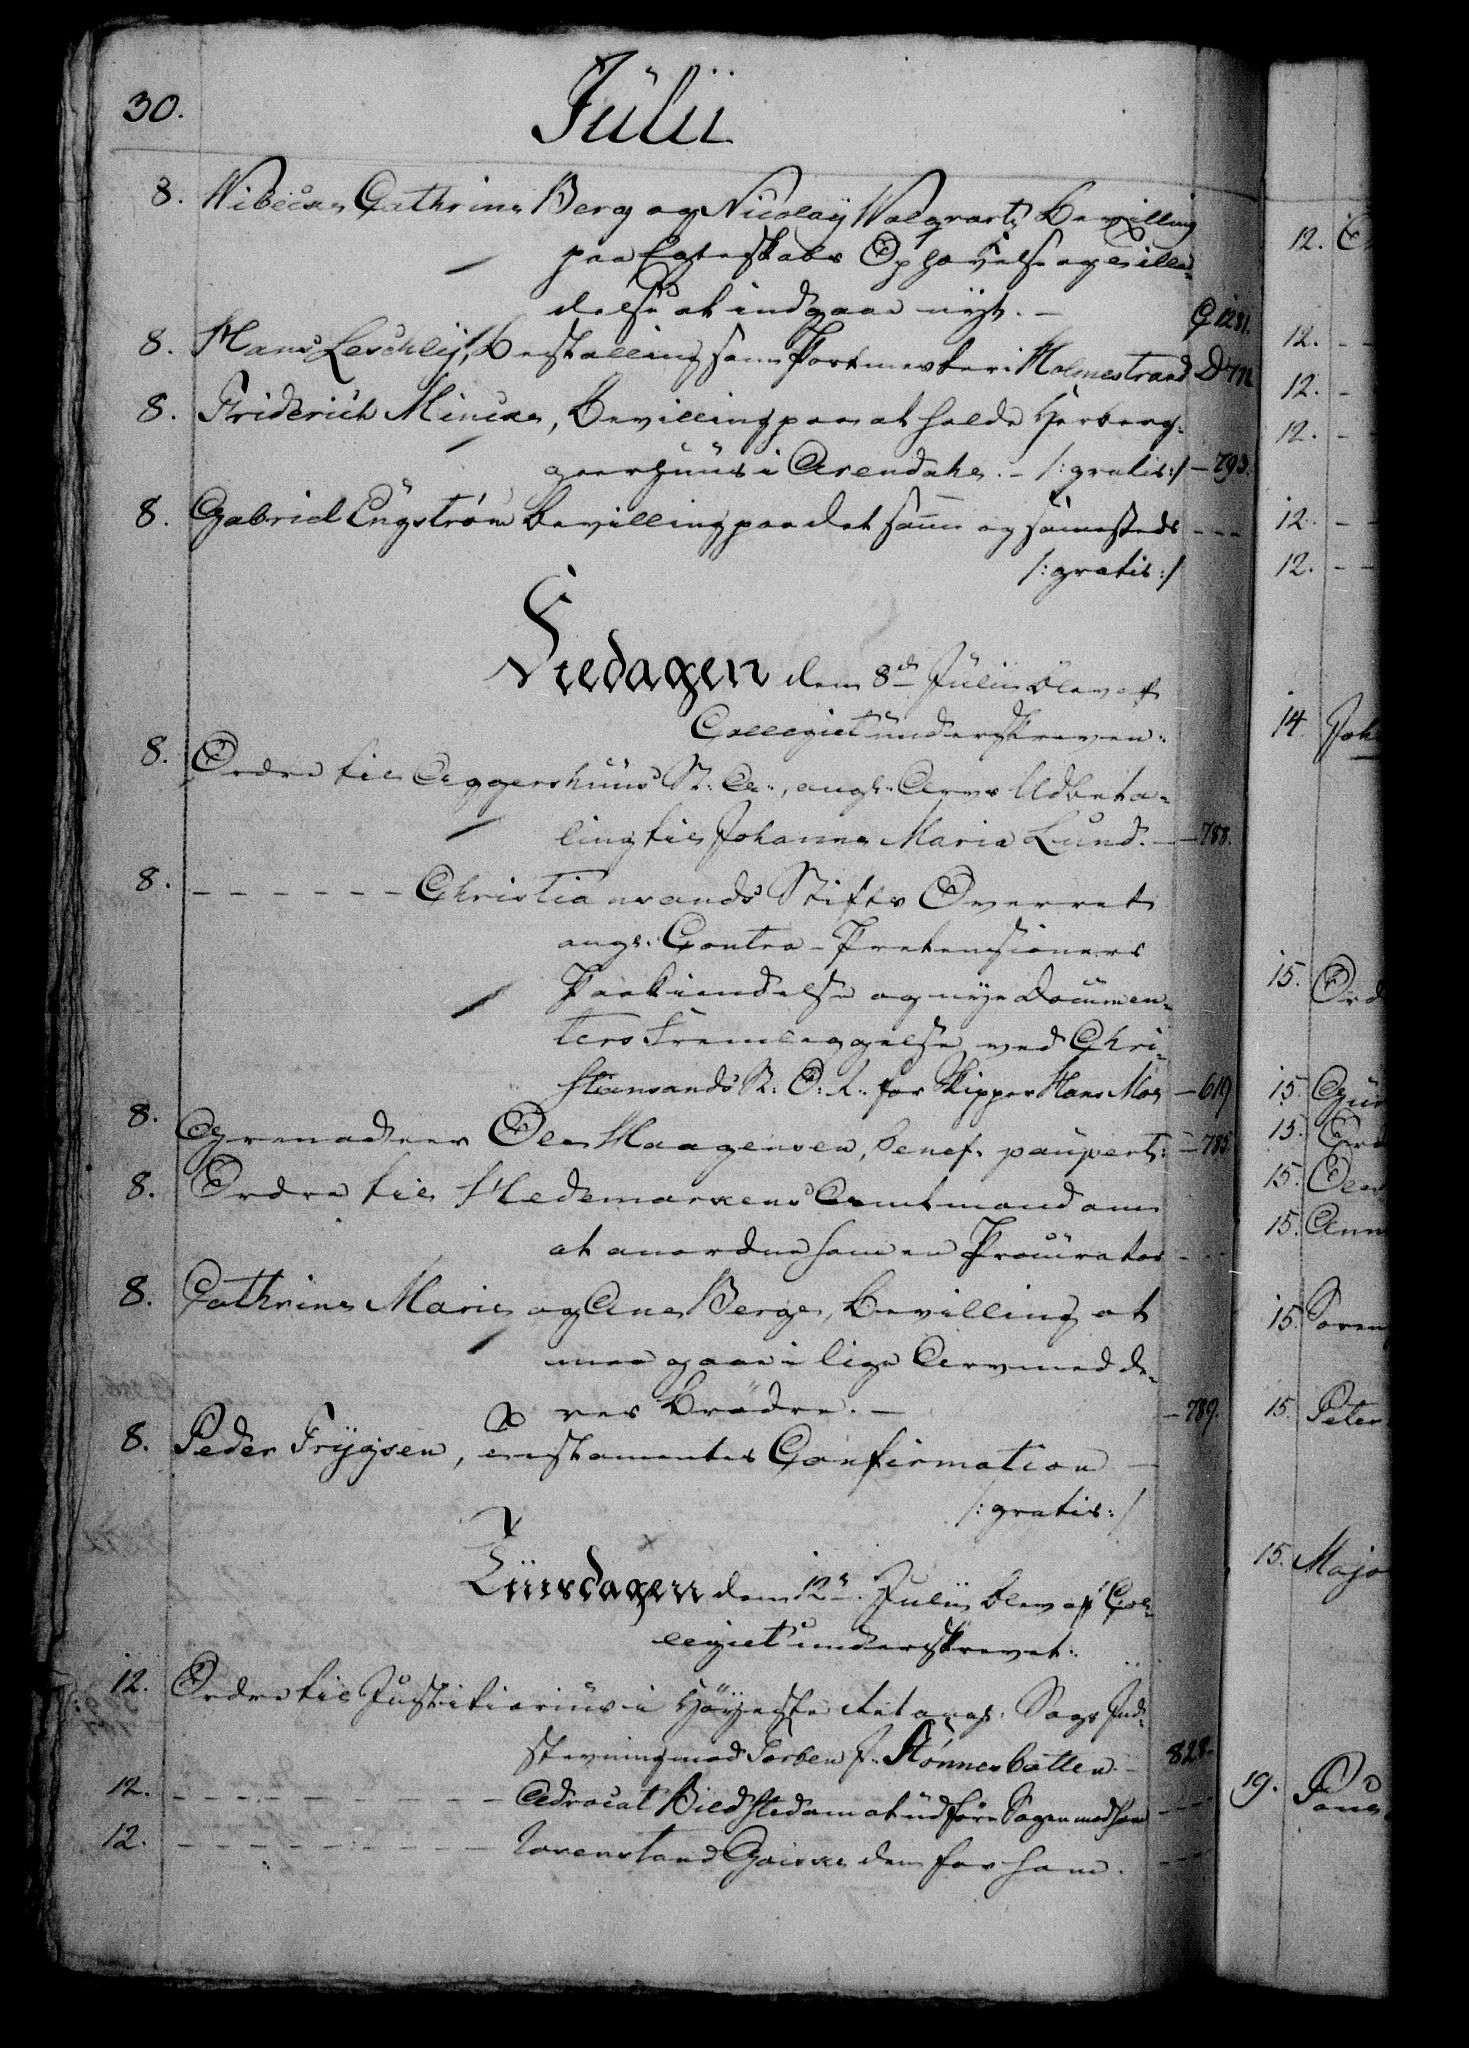 30.
Julii
8. Wibecke Cathrine Berg og Nicolaÿ Walgvartz Bevilling
paa Egteskabs Ophævelse og Tilla-
delse at indgaae nyt. - G 1281.
8. Hans Leschlÿ, Bestalling som Postmester i Holmestrand D 712
8. Friderich Mincke, Bevilling paa at holde Herberg-
geerhuus i Arendahl. - /:gratis:/ - 793.
8. Gabriel Engstrøm bevilling paa det samme og sammesteds ---
/:gratis:/
Fredagen dem 8de Julii blev af
Collegiet underskreven:
8. Ordre til Aggershuus St: A:, angl: Arvs Udbeta-
ling til Johanne Maria Lund. - - 788.
8. - - - - - - Christiansands Stifts Overret
angl. Contra-Prætensioners
Paakiendelse og nye Documen-
ters Fremlæggelse ved Chri-
stiansands St: O: R: for Skipper Hans Moe - 619
8. Grenadeer Ole Haagensen, benef. paupert: - 785
8. Ordre til Hedemarkens Amtmand om
at anordne ham en Procurator - - -
8. Cathrine Marie og Ane Berge, bevilling at
maa gaae i lige Arv med de-
res Brødre. - - 789.
8. Peder Frÿgsen, Testamentes Confirmation -
/:gratis:/
Tiirsdagen dem 12te Julii blev af Col-
legiet underskrevet:
12. Ordre til Justitiarius i Høÿeste Ret angl. Sags Ind-
stevning mod Torben J. Stønnesbotten - 828.
12. - - - - - - - - - Advocat Bildsted om at udføre Sagen mod ham ---
12. - - - - - - - - - for ham. ---
12.
12. - -
12. -
12. -
12. - -
12. - -
14.
15.
15.
15.
15.
15.
15.
15. Peter
15. Majo
19.